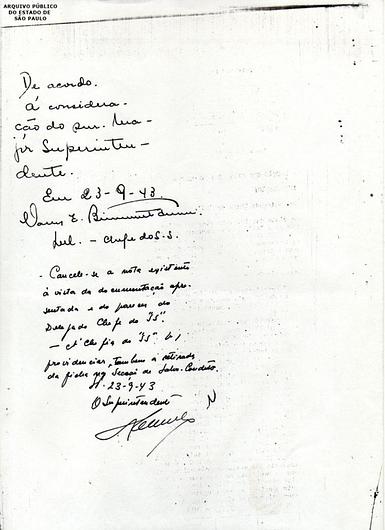 ARQUIVO PÚBLICO
DO ESTADO DE
SÃO PAULO
De acordo.
Á considera-
ção do snr. Ma-
jor Superinten-
dente.
Em 23-9-43.
Del. - chefe do S.S.
- Cancele-se a nota existente
à vista da documentação apre-
sentada e do parecer do
Delegado Chefe do "IS".
- Á Chefia do "IS" p/
providenciar, também a retirada
da ficha na Secção de Salvo-Condutos.
23-9-43
O Superintendente